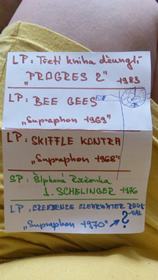 LP: Třetí kniha džunglí
"PROGRES 2" 1983
LP: BEE GEES
"Supraphon 1969"
LP: SKIFFLE KONTRA
"Supraphon 1968"
SP: Šípková Růženka
J. SCHELINGER 1976
LP "CREEDENCE CLEARWATER
"Supraphon 1970" ?